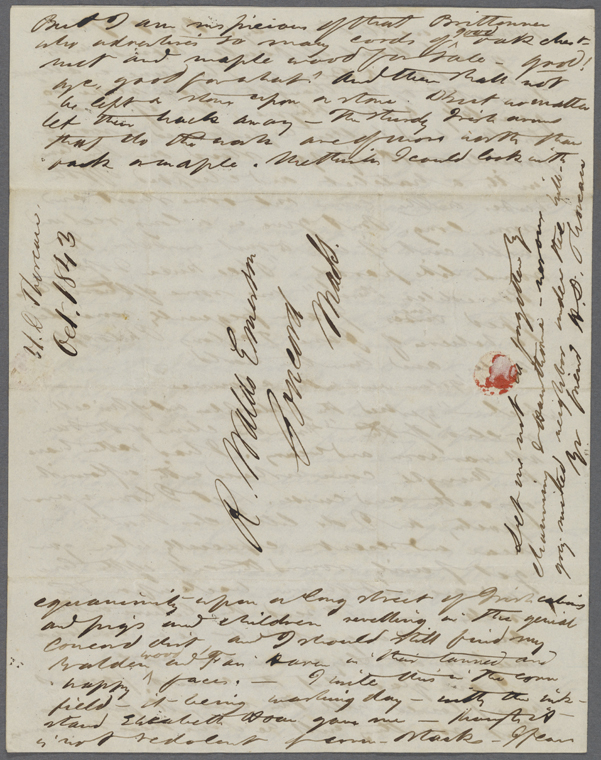 But I am suspicious of that Brittonner
who advertises so many cords of good oak chest-
nut and maple wood for sale – good!
aye, good for what? And there shall not
be left a stone upon a stone. But no matter
let them hack away – The sturdy Irish arms
that do the work are of more worth than
oak or maple. Methinks I could look with
equanimity upon a long street of Irish cabins
and pigs and children revelling in the genial
Concord dirt and I should still find my
Walden wood and Fair Haven in their tanned and
happy faces. –   I write this in the corn
field – it being washing day – with the ink-
stand Elizabeth Hoar gave me – though it
is not redolent of corn-stalks – I fear
Let me not be forgotten by
Channing & Hawthorne – nor our
grey suited neighbor under the hill
Yr friend H. D. Thoreau
R. Waldo Emerson
Concord
Mass.
H. D. Thoreau.
Oct. 1843